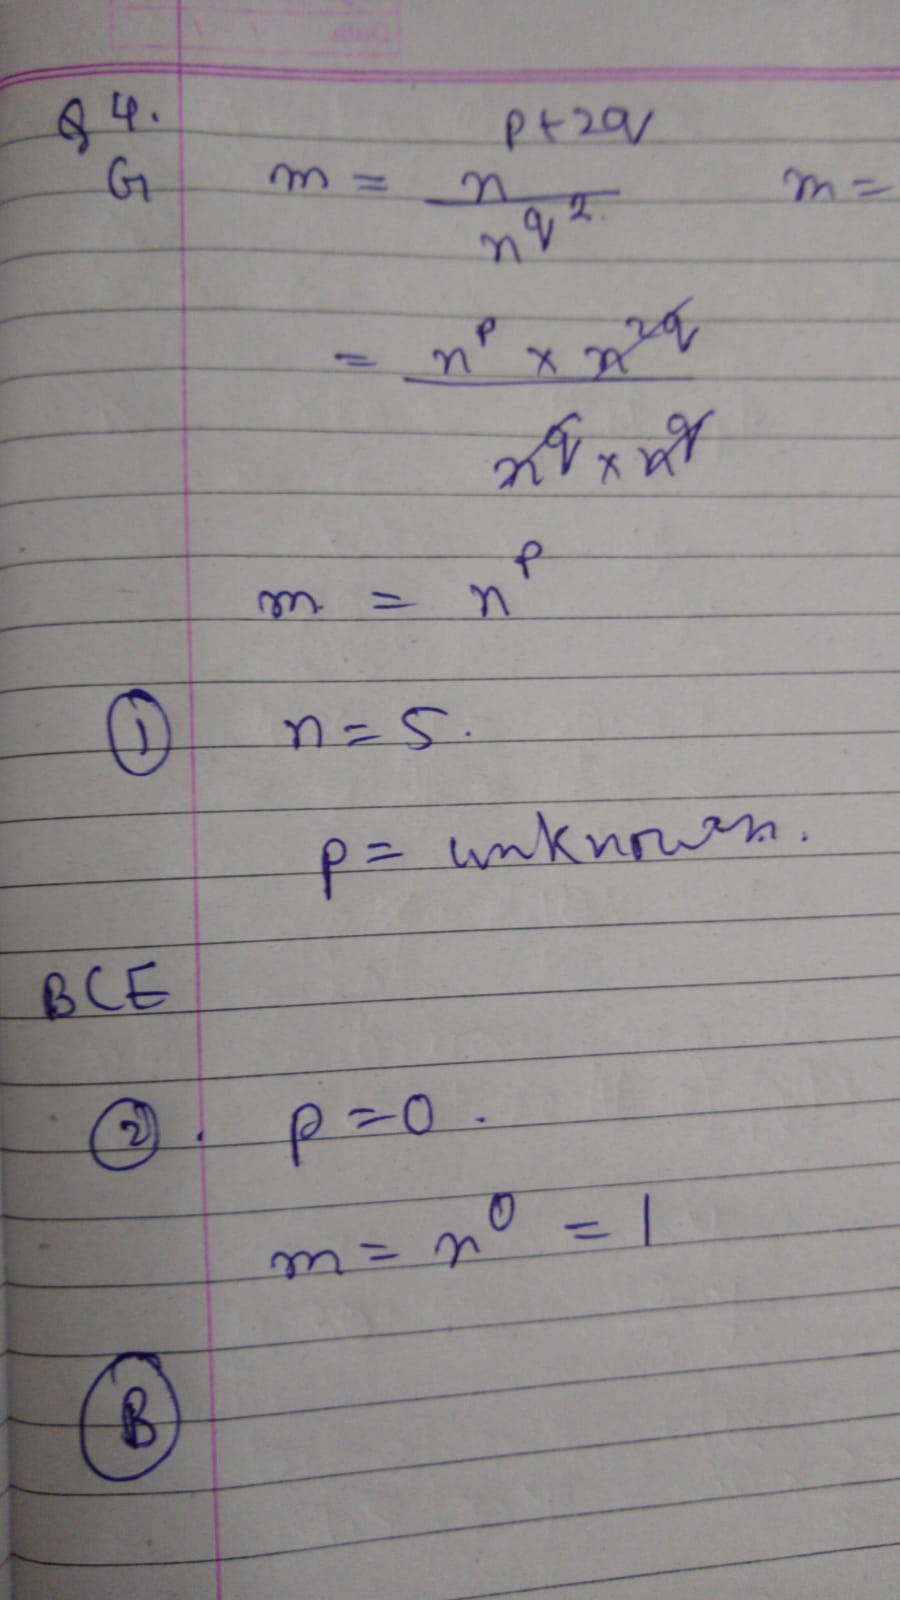 Q 4.
G m = n^(p+2q) / n^(q^2) m =
= n^p × n^(2q) / n^q × n^q
m = n^p
① n = 5.
p = unknown.
BCE
② . p = 0.
m = n^0 = 1
B